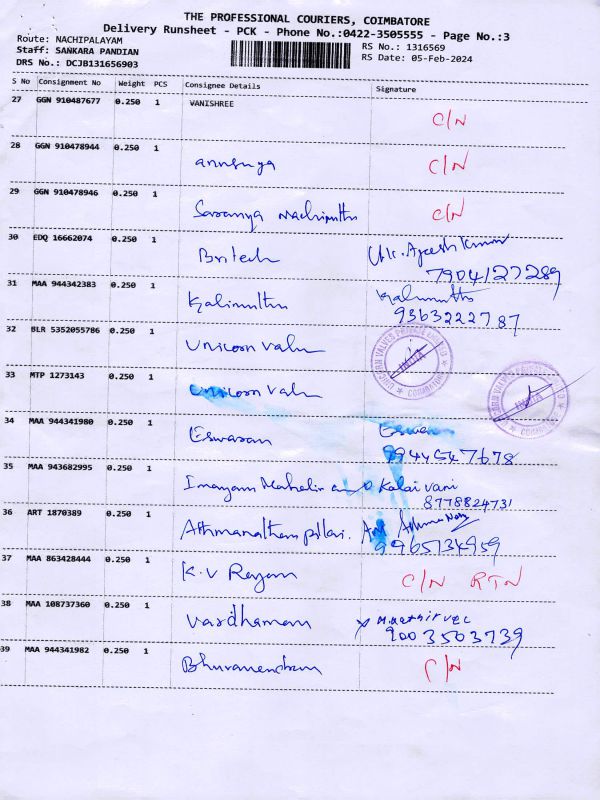 THE PROFESSIONAL COURIERS, COIMBATORE
Delivery Runsheet - PCK - Phone No.:0422-3505555 - Page No.:3
Route: NACHIPALAYAM
RS No.: 1316569
Staff: SANKARA PANDIAN
RS Date: 05-Feb-2024
DRS No.: DCJB131656903
S No Consignment No Weight PCS Consignee Details Signature
27 GGN 910487677 0.250 1 VANISHREE C/N
28 GGN 910478944 0.250 1 anusuya C/N
29 GGN 910478946 0.250 1 Saranya C/N
30 EDQ 16662074 0.250 1 Britech
7904127289
31 MAA 944342383 0.250 1 Kalimuthu Kalimuthu
9363222787
32 BLR 5352055786 0.250 1 Unicorn Valu
33 MTP 1273143 0.250 1 Unicorn Valu
34 MAA 944341980 0.250 1 Eswaran
9944547678
35 MAA 943682995 0.250 1 Kalaivani
8778824731
36 ART 1870389 0.250 1
9965134959
37 MAA 863428444 0.250 1 K.V C/N RTN
38 MAA 108737360 0.250 1 Vardhaman
9003503739
39 MAA 944341982 0.250 1 C/N